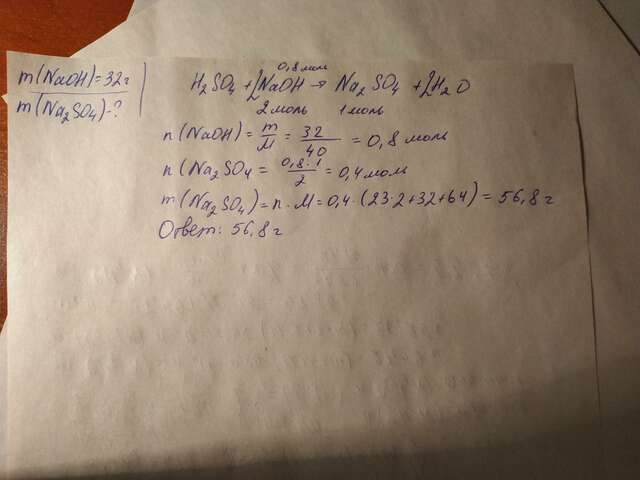 m(NaOH)=32г
m(Na₂SO₄)-?
0,8 моль
H₂SO₄ + 2NaOH → Na₂SO₄ + 2H₂O
2 моль 1 моль
n(NaOH) = m/M = 32/40 = 0,8 моль
n(Na₂SO₄ = 0,8·1/2 = 0,4 моль
m(Na₂SO₄) = n·M = 0,4·(23·2+32+64) = 56,8 г
Ответ: 56,8 г